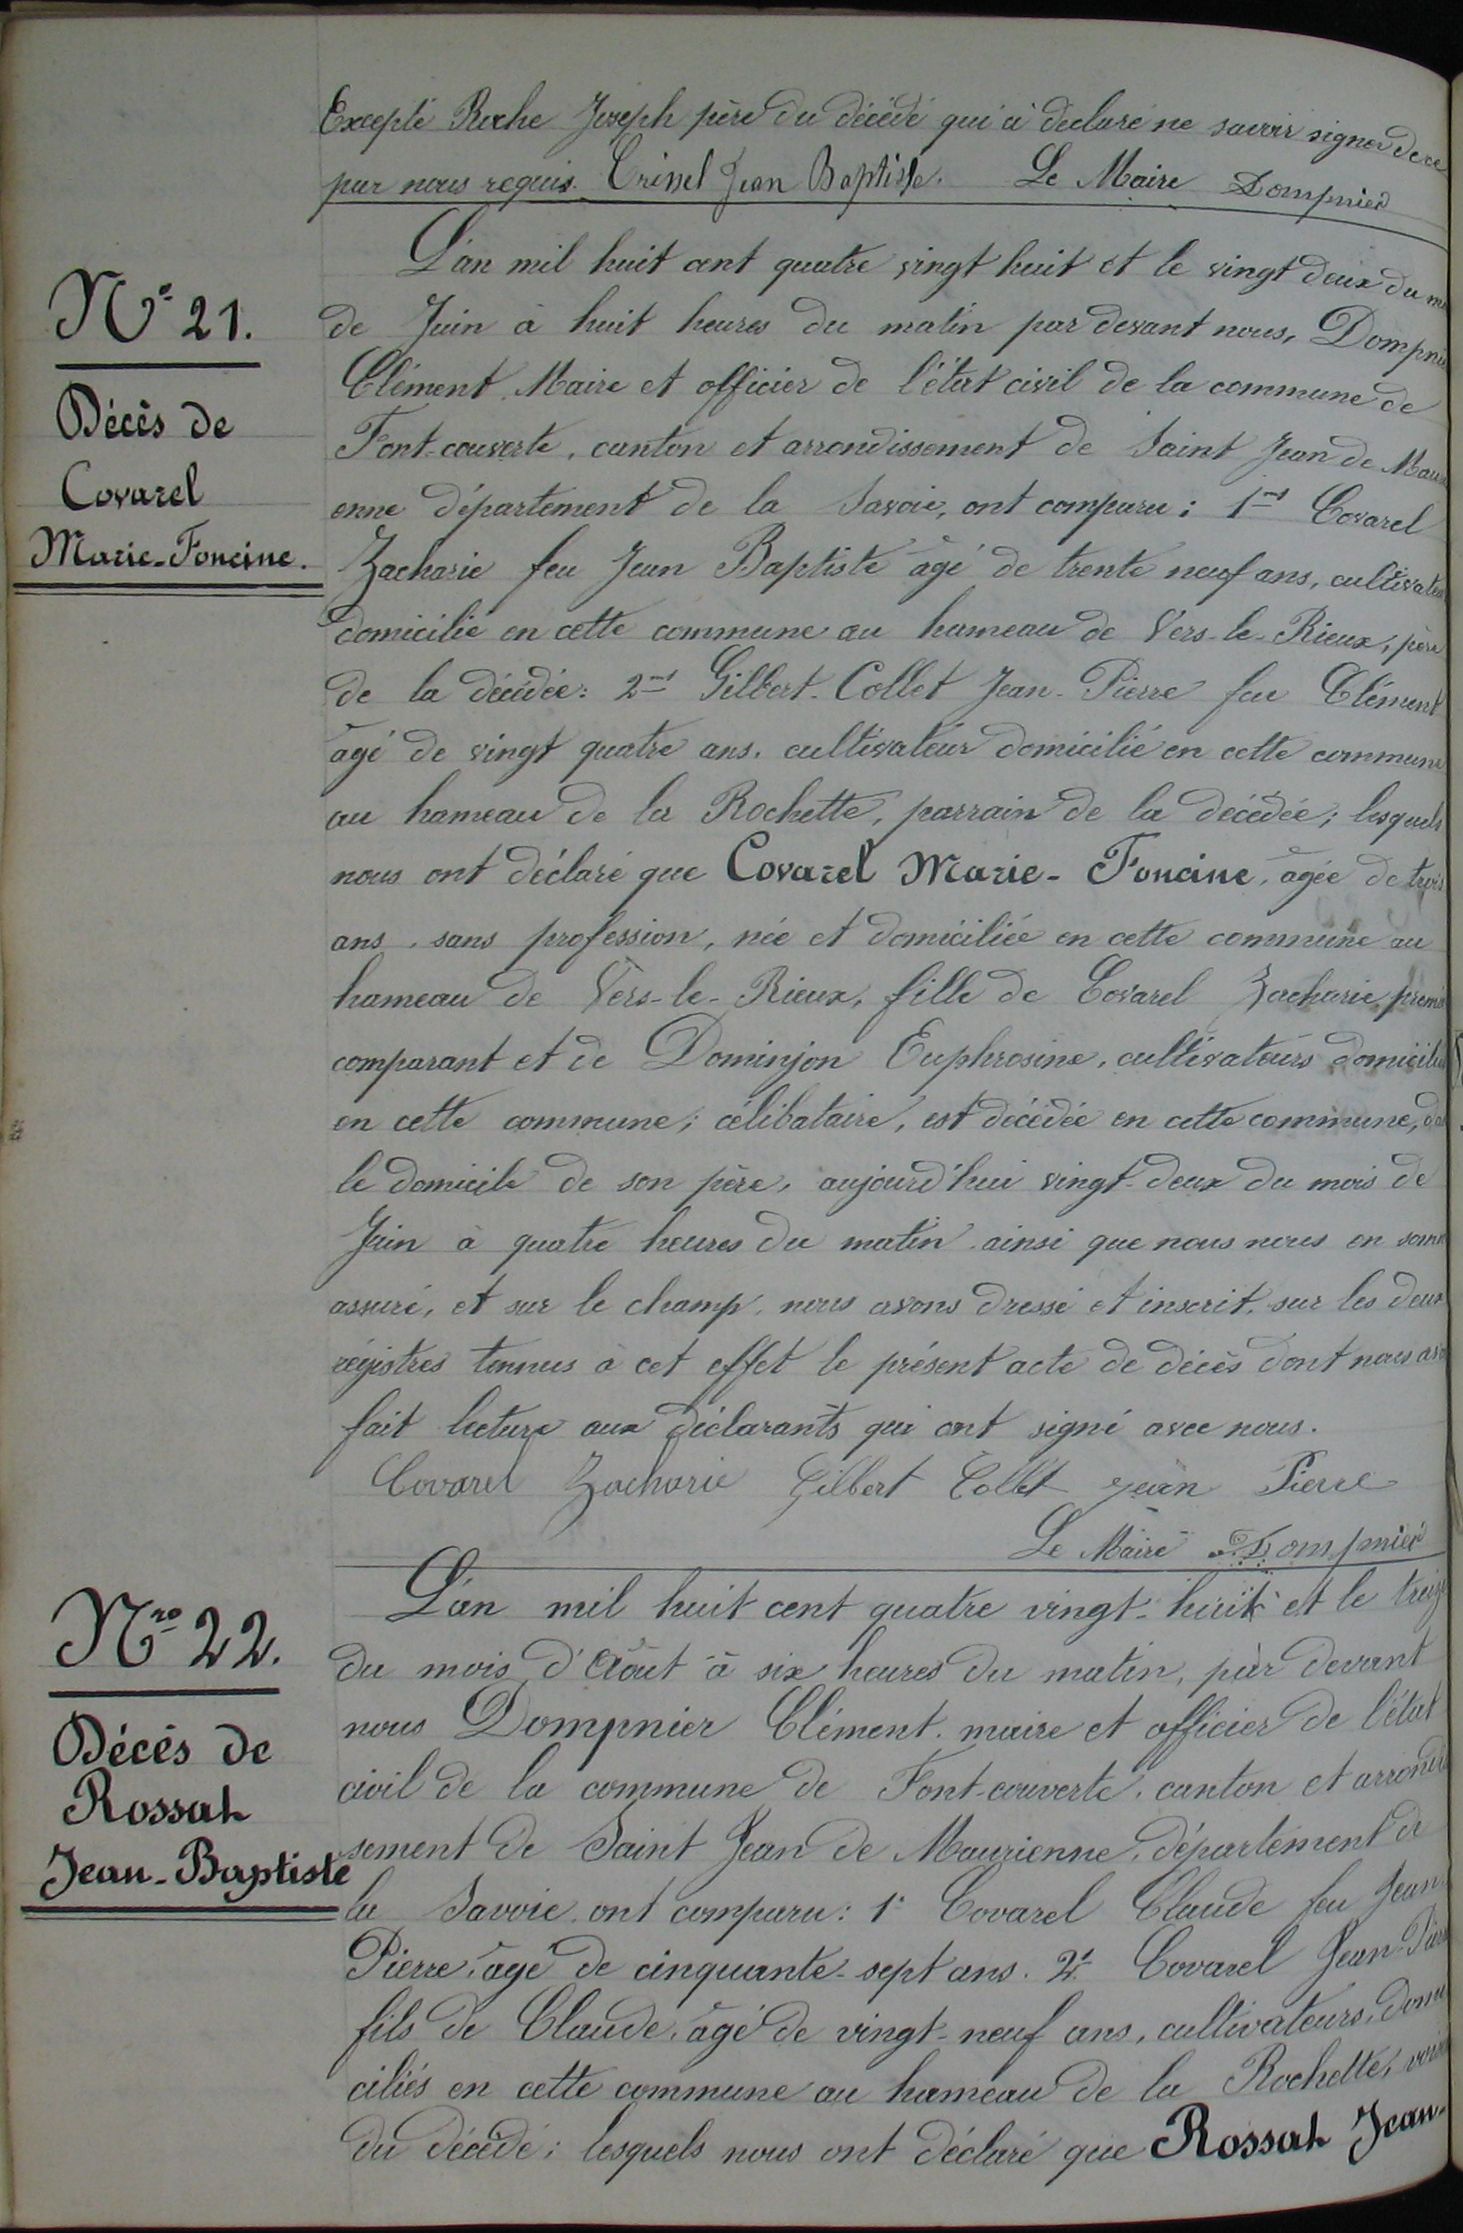 Excepté Roche Joseph père du décédé qui à déclaré ne savoir signer de ce
par nous requis. Trissel Jean Baptiste. Le Maire Dompnier
N° 21.
Décès de
Covarel
Marie-Foncine.
L'an mil huit cent quatre vingt huit et le vingt deux du
de Juin à huit heures du matin par devant nous, Dompnier
Clément Maire et officier de l'état civil de la commune de
Font-couverte, canton et arrondissement de Saint Jean de Mauri
enne département de la Savoie, ont comparu : 1nt Covarel
Zacharie feu Jean Baptiste âgé de trente neuf ans, cultivateur
domicilié en cette commune au hameau de Vers-le-Rieux, père
de la décédée : 2nt Gilbert-Collet Jean-Pierre feu Clément
âgé de vingt quatre ans, cultivateur domicilié en cette commune
au hameau de la Rochette, parrain de la décédée ; lesquels
nous ont déclaré que Covarel Marie-Foncine, âgée de trois
ans, sans profession, née et domiciliée en cette commune au
hameau de Vers-le-Rieux, fille de Covarel Zacharie, premier
comparant et de Dominjon Euphrosine, cultivateurs domiciliés
en cette commune ; célibataire, est décédée en cette commune,
le domicile de son père, aujourd'hui vingt-deux du mois de
Juin à quatre heures du matin ainsi que nous nous en somm
assuré, et sur le champ, nous avons dressé et inscrit, sur les deux
régistres tennus à cet effet le présent acte de décès dont nous avo
fait lecture aux déclarants qui ont signé avec nous.
Covarel Zacharie Gilbert Collet jean Pierre
Le Maire Dompnier
Nro 22.
Décés de
Rossat
Jean-Baptiste
L'an mil huit cent quatre vingt-huit et le treize
du mois d'Août à six heures du matin, par devant
nous Dompnier Clément, maire et officier de l'état
civil de la commune de Font-couverte, canton et arrondis
sement de Saint Jean de Maurienne, département de
la Savoie, ont comparu : 1° Covarel Claude feu Jean
Pierre, âgé de cinquante-sept ans. 2° Covarel Jean-Pierre
fils de Claude, âgé de vingt-neuf ans, cultivateurs, domi
ciliés en cette commune au hameau de la Rochette, voisins
du décédé ; lesquels nous ont déclaré que Rossat Jean-